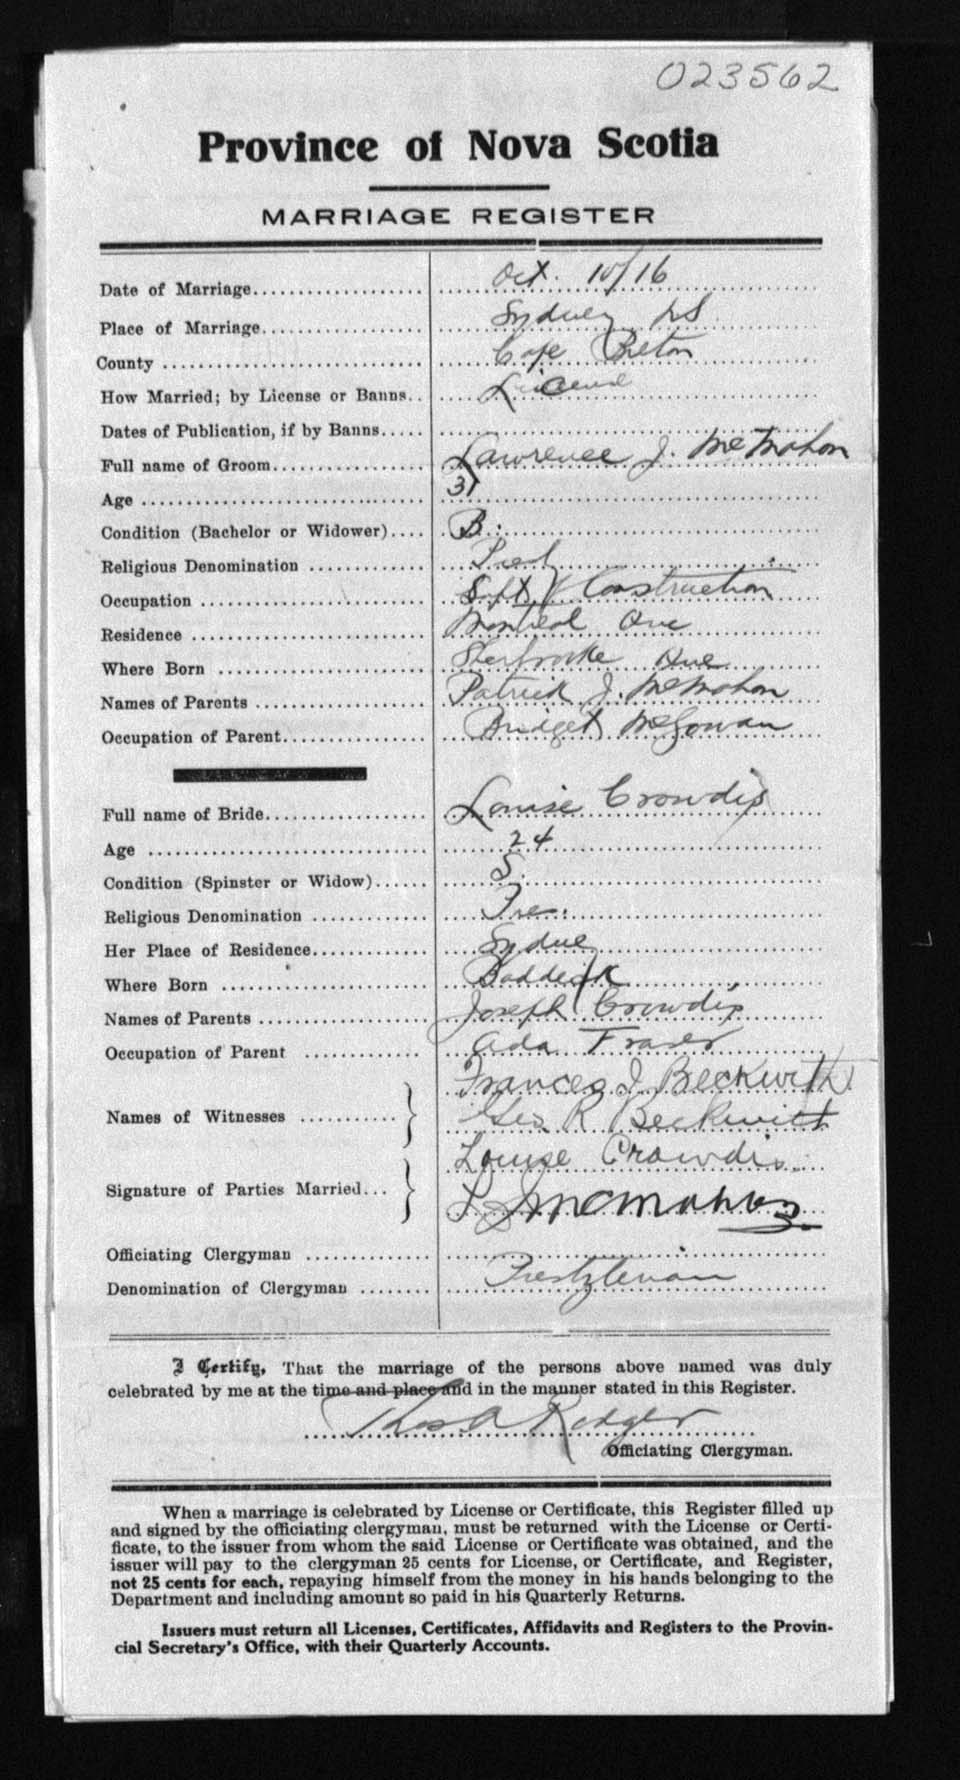 023562
Province of Nova Scotia
MARRIAGE REGISTER
Date of Marriage Oct. 10/16
Place of Marriage Sydney NS
County Cape Breton
How Married; by License or Banns License
Dates of Publication, if by Banns
Full name of Groom Lawrence J. McMahon
Age 31
Condition (Bachelor or Widower) B.
Religious Denomination Presb
Occupation Supt of Construction
Residence Montreal Que
Where Born Sherbrooke Que
Names of Parents Patrick J. McMahon
Occupation of Parent Bridget McGowan
Full name of Bride Louise Crowdis
Age 24
Condition (Spinster or Widow) S.
Religious Denomination Pres.
Her Place of Residence Sydney
Where Born Baddeck
Names of Parents Joseph Crowdis
Occupation of Parent Ada Fraser
Frances J. Beckwith
Names of Witnesses Geo R Beckwith
Louise Crowdis
Signature of Parties Married L J McMahon
Officiating Clergyman
Denomination of Clergyman Presbyterian
I Certify, That the marriage of the persons above named was duly
celebrated by me at the time and place and in the manner stated in this Register.
Thos A Rodger
Officiating Clergyman.
When a marriage is celebrated by License or Certificate, this Register filled up
and signed by the officiating clergyman, must be returned with the License or Certi-
ficate, to the issuer from whom the said License or Certificate was obtained, and the
issuer will pay to the clergyman 25 cents for License, or Certificate, and Register,
not 25 cents for each, repaying himself from the money in his hands belonging to the
Department and including amount so paid in his Quarterly Returns.
Issuers must return all Licenses, Certificates, Affidavits and Registers to the Provin-
cial Secretary's Office, with their Quarterly Accounts.